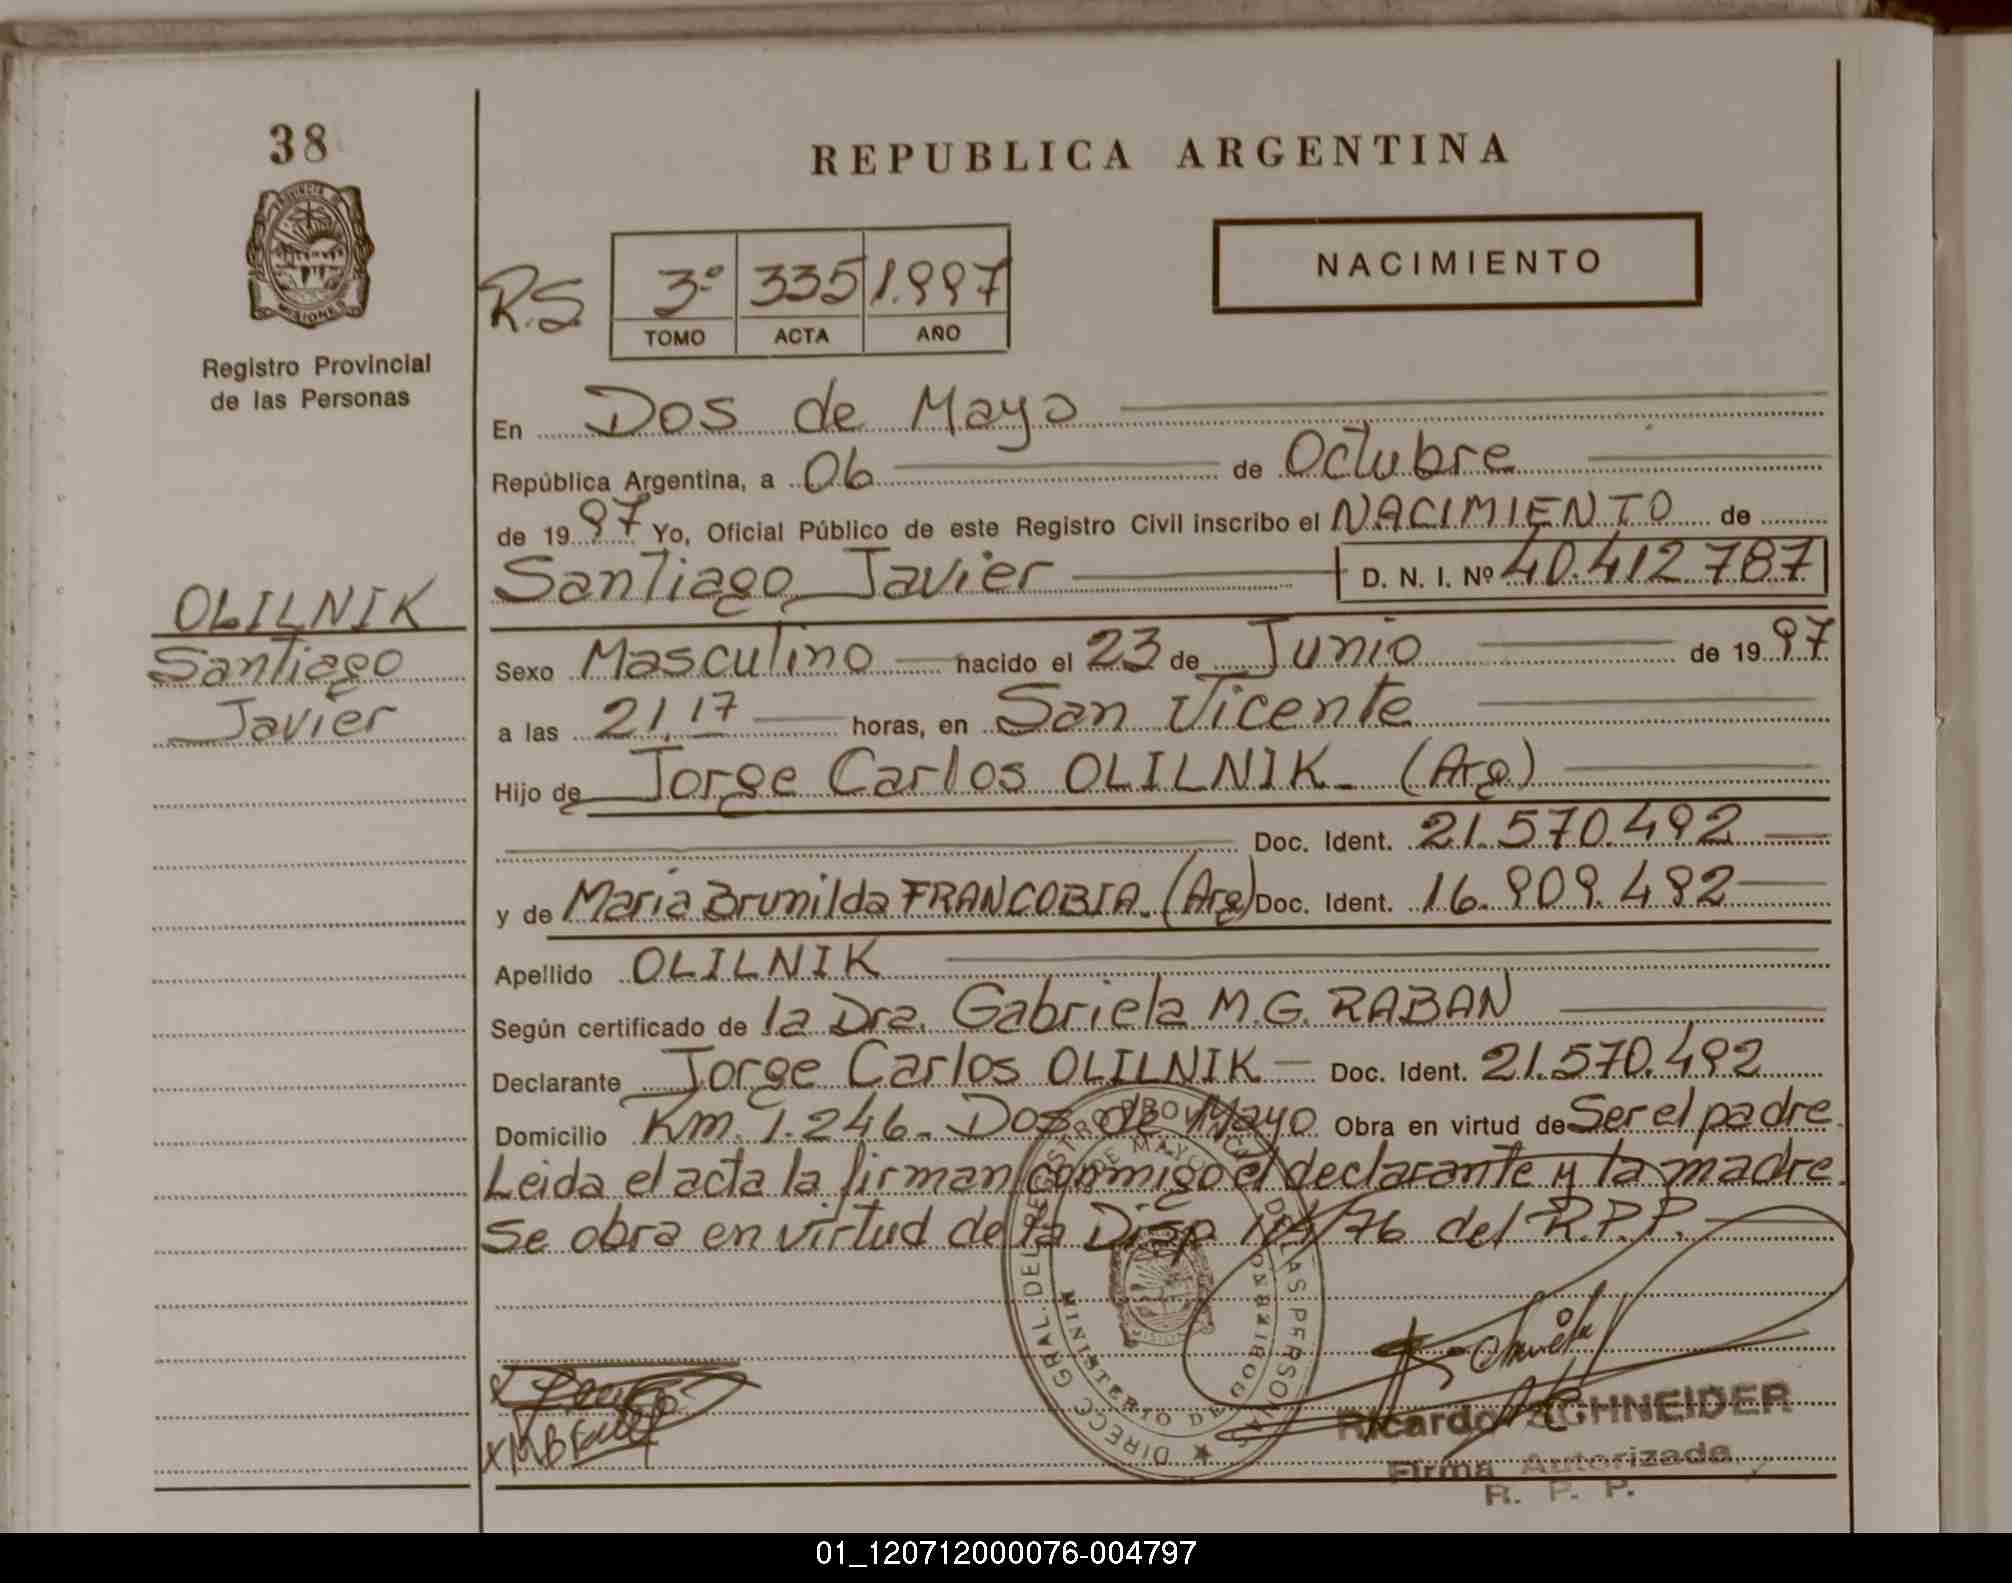 38
REPUBLICA ARGENTINA
NACIMIENTO
R.S. 3º 335 1.997
TOMO ACTA AÑO
Registro Provincial
de las Personas
En Dos de Mayo
República Argentina, a 06 de Octubre
de 1997 Yo, Oficial Público de este Registro Civil inscribo el NACIMIENTO de
Santiago Javier D. N. I. Nº 40.412.787
OLILNIK
Santiago
Javier
Sexo Masculino nacido el 23 de Junio de 1997
a las 21.17 horas, en San Vicente
Hijo de Jorge Carlos OLILNIK - (Arg)
Doc. Ident. 21.570.492
y de Maria Brunilda FRANCOBIA. (Arg) Doc. Ident. 16.909.492
Apellido OLILNIK
Según certificado de la Dra. Gabriela M.G. RABAN
Declarante Jorge Carlos OLILNIK - Doc. Ident. 21.570.492
Domicilio Km. 1.246 - Dos de Mayo Obra en virtud de Ser el padre.
Leida el acta la firman conmigo el declarante y la madre.
Se obra en virtud de la Disp /76 del R.P.P.
DIRECC GRAL. DEL REGISTRO PROVINCIAL DE LAS PERSONAS
MINISTERIO DE GOBIERNO
DOS DE MAYO
Ricardo SCHNEIDER
Firma Autorizada
R. P. P.
01_120712000076-004797